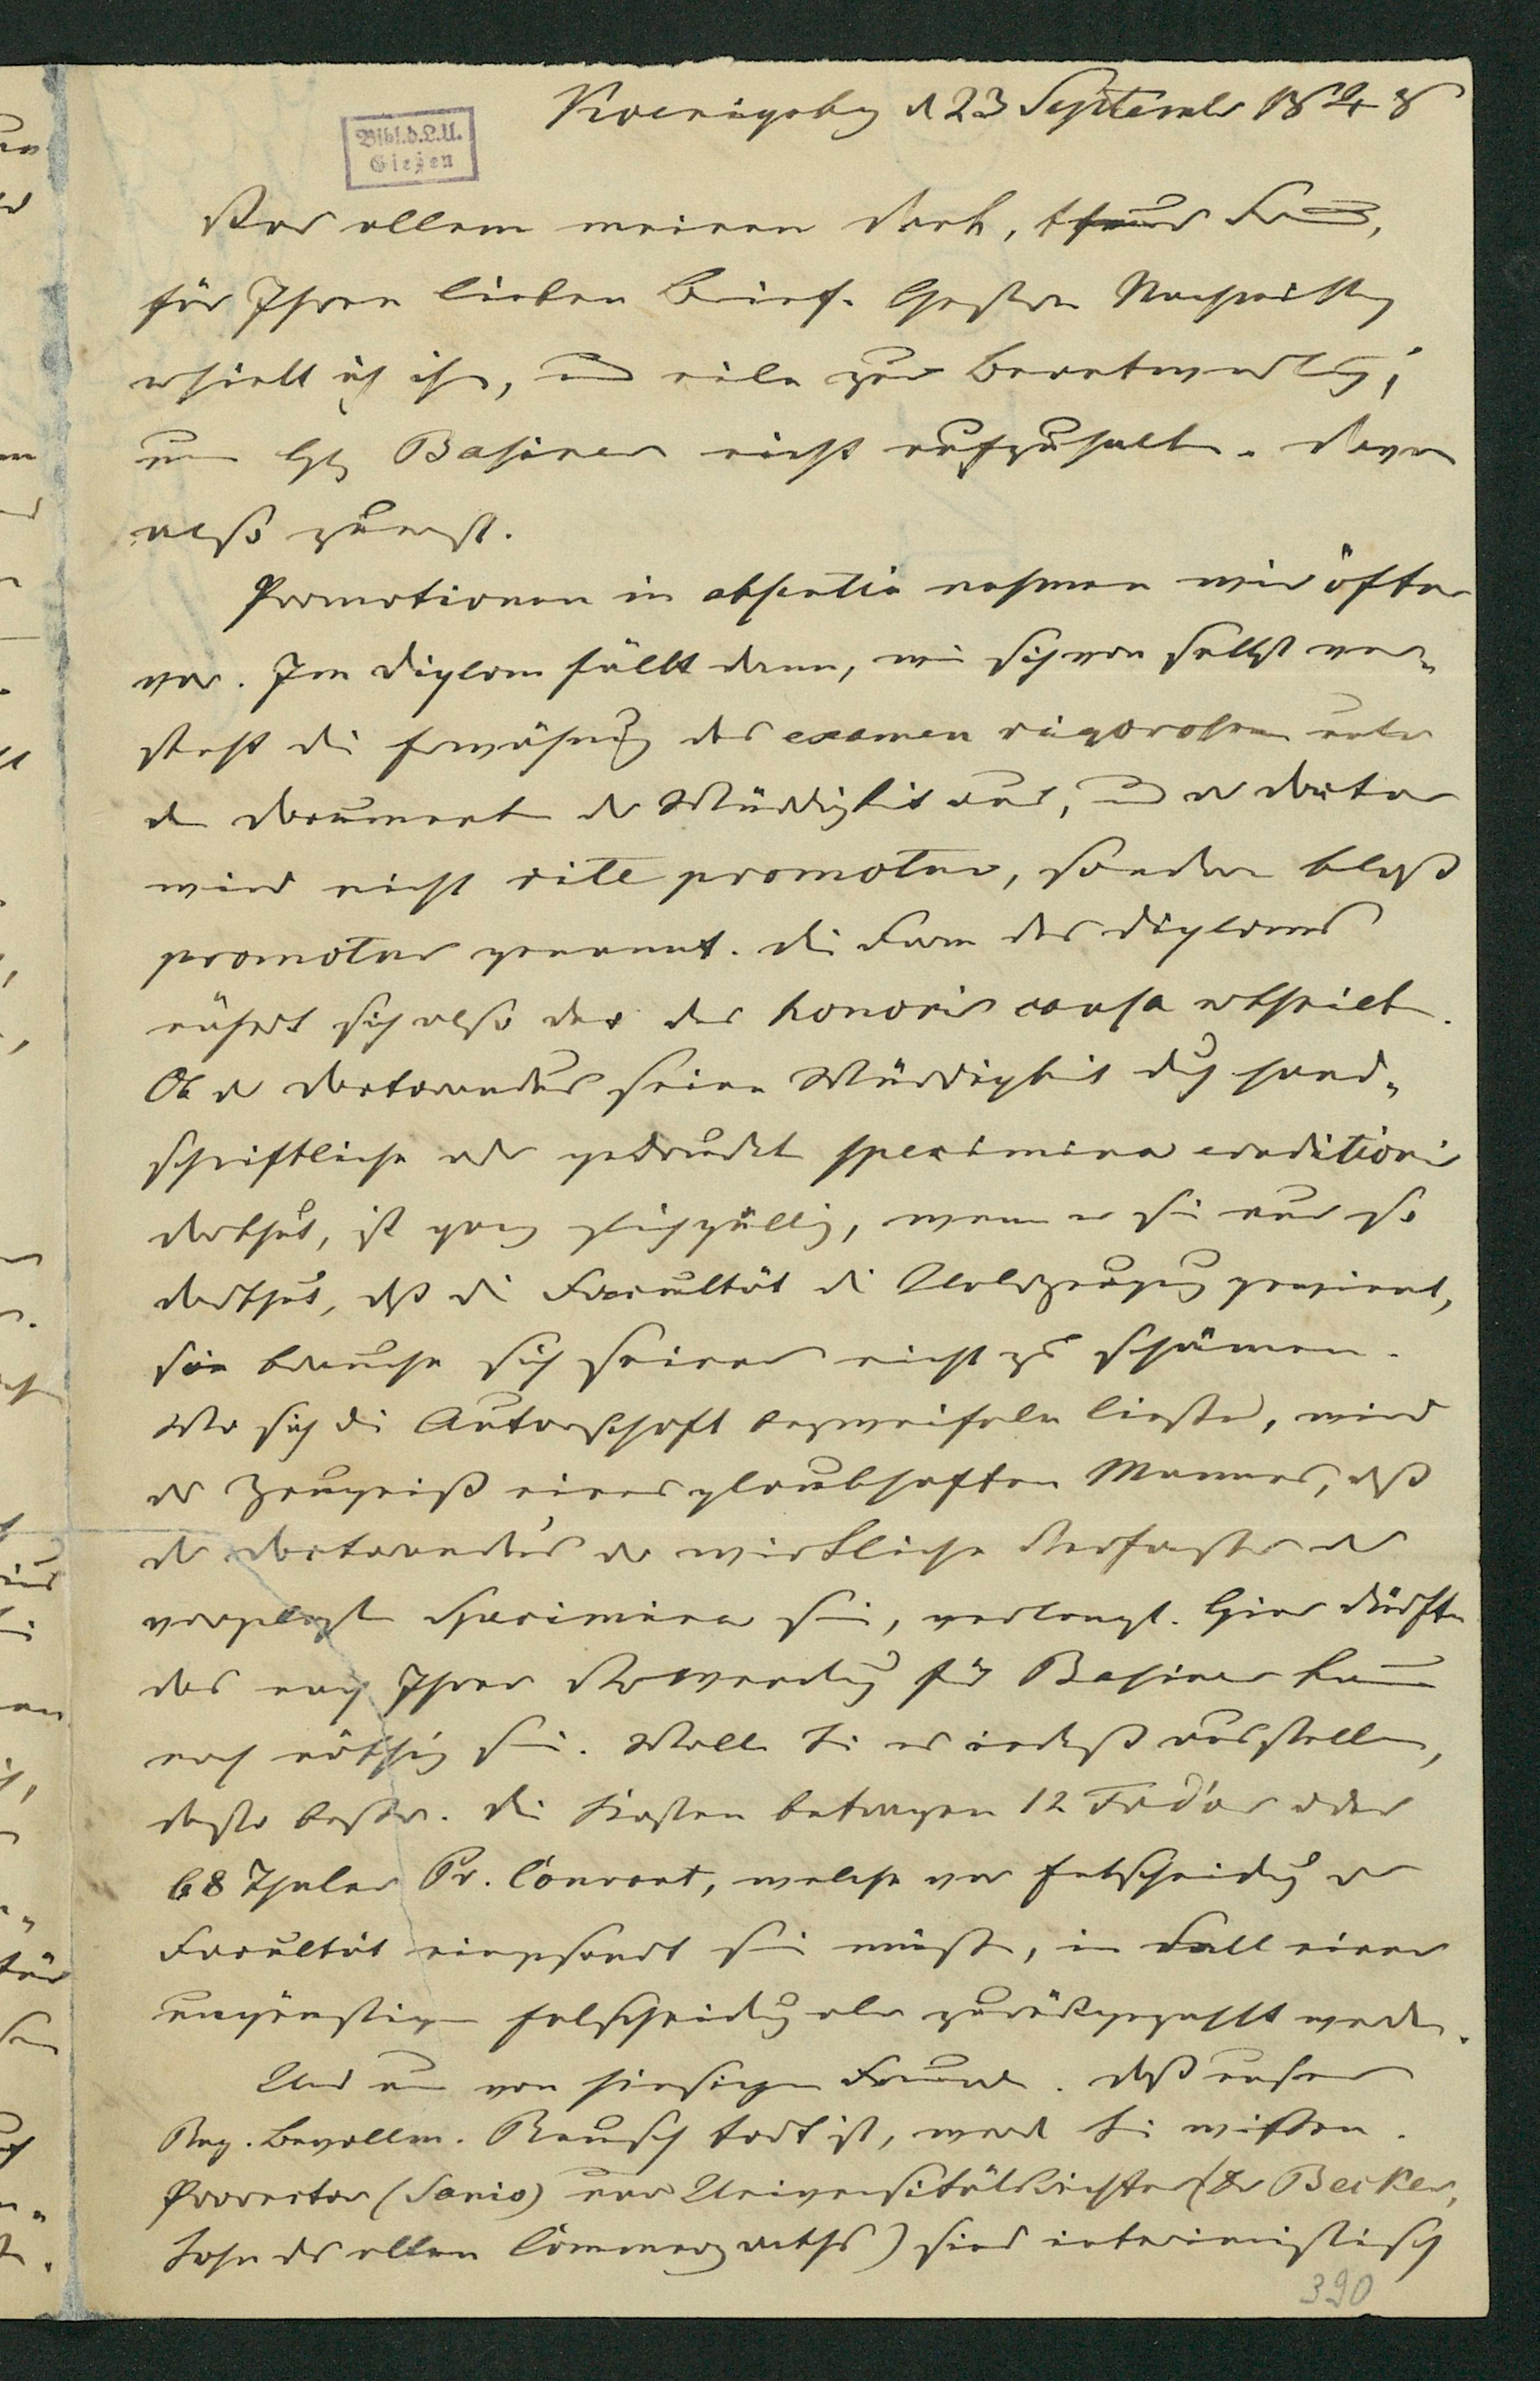 Koenigsbg d 23 September 1848
Bibl.d.L.U.
Gießen
Vor allem meinen Dank, theurer Freund,
für Ihren lieben Brief. Gestern Nachmittag
erhielt ich ihn, und eile zur Beantwortung,
um Hn Basiner nicht aufzuhalten. Davon
also zuerst.
Promotionen in absentia nehmen wir öfter
vor. Im Diplom fällt dann, wie sich von selbst ver-
steht die Erwähnung des examen rigorosum unter
den Documenten der Würdigkeit aus, und der Doctor
wird nicht rite promotus, sondern bloß
promotus genannt. Die Form des Diploms
nähert sich also der des honoris causa ertheilten.
Ob der Doctorandus seine Würdigkeit durch hand-
schriftliche oder gedruckte specimina eruditionis
darthut, ist ganz gleichgültig, wenn er sie nur so
darthut, daß die Facultät die Ueberzeugung gewinnt,
sie brauche sich seiner nicht zu schämen.
Wo sich die Autorschaft bezweifeln ließe, wird
das Zeugniß eines glaubhaften Mannes, daß
der Doctorandus der wirkliche Verfasser der
vorgelegten Specimina sei, verlangt. Hier dürfte
das nach Ihrer Verwendung für Basiner kaum
noch nöthig sein. Wollen Sie es indeß ausstellen,
desto besser. Die Kosten betragen 12 Frd'or oder
68 Thaler Pr. Courant, welche vor Entscheidung der
Facultät eingesandt sein müssen, im Fall einer
ungünstigen Entscheidung aber zurückgezahlt werden.
Und nun von hiesigen Freunden. Daß unser
Reg. Bevollm. Reusch todt ist, werden Sie wissen.
Prorector (Sanio) und Universitätsrichter (Dr Becker,
Sohn des alten Commerzraths) sind interimistisch
390